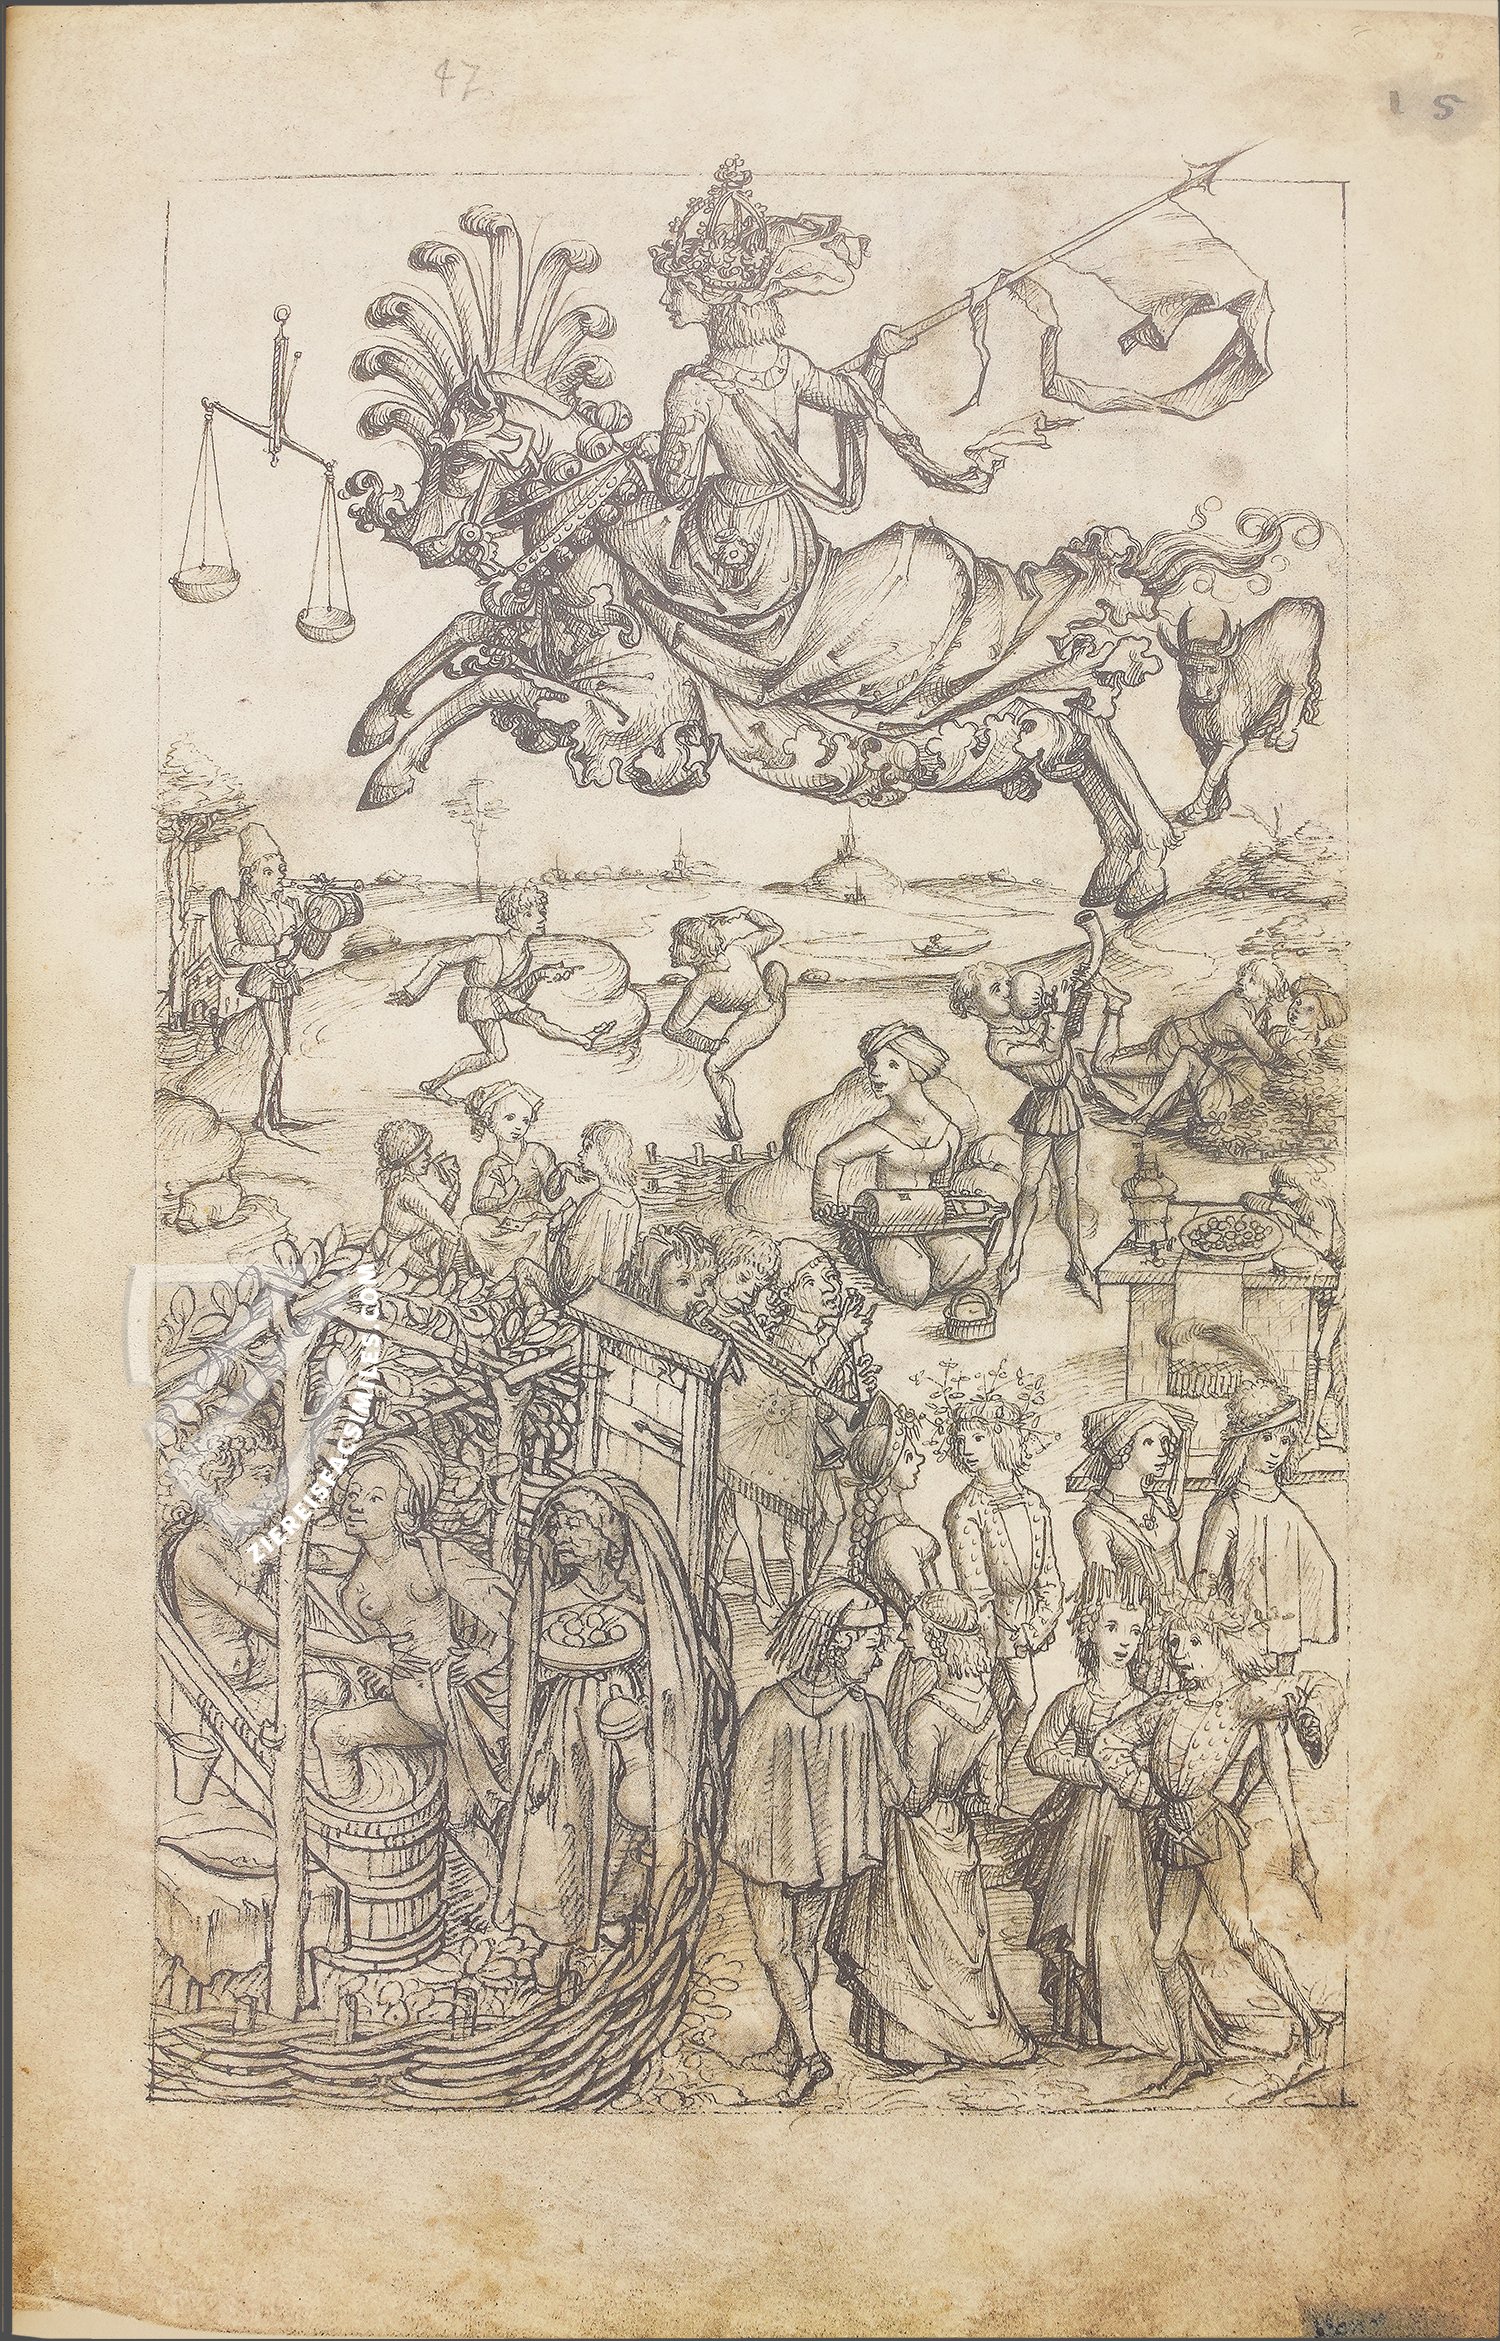 47
15
ZIEREISFACSIMILES.COM